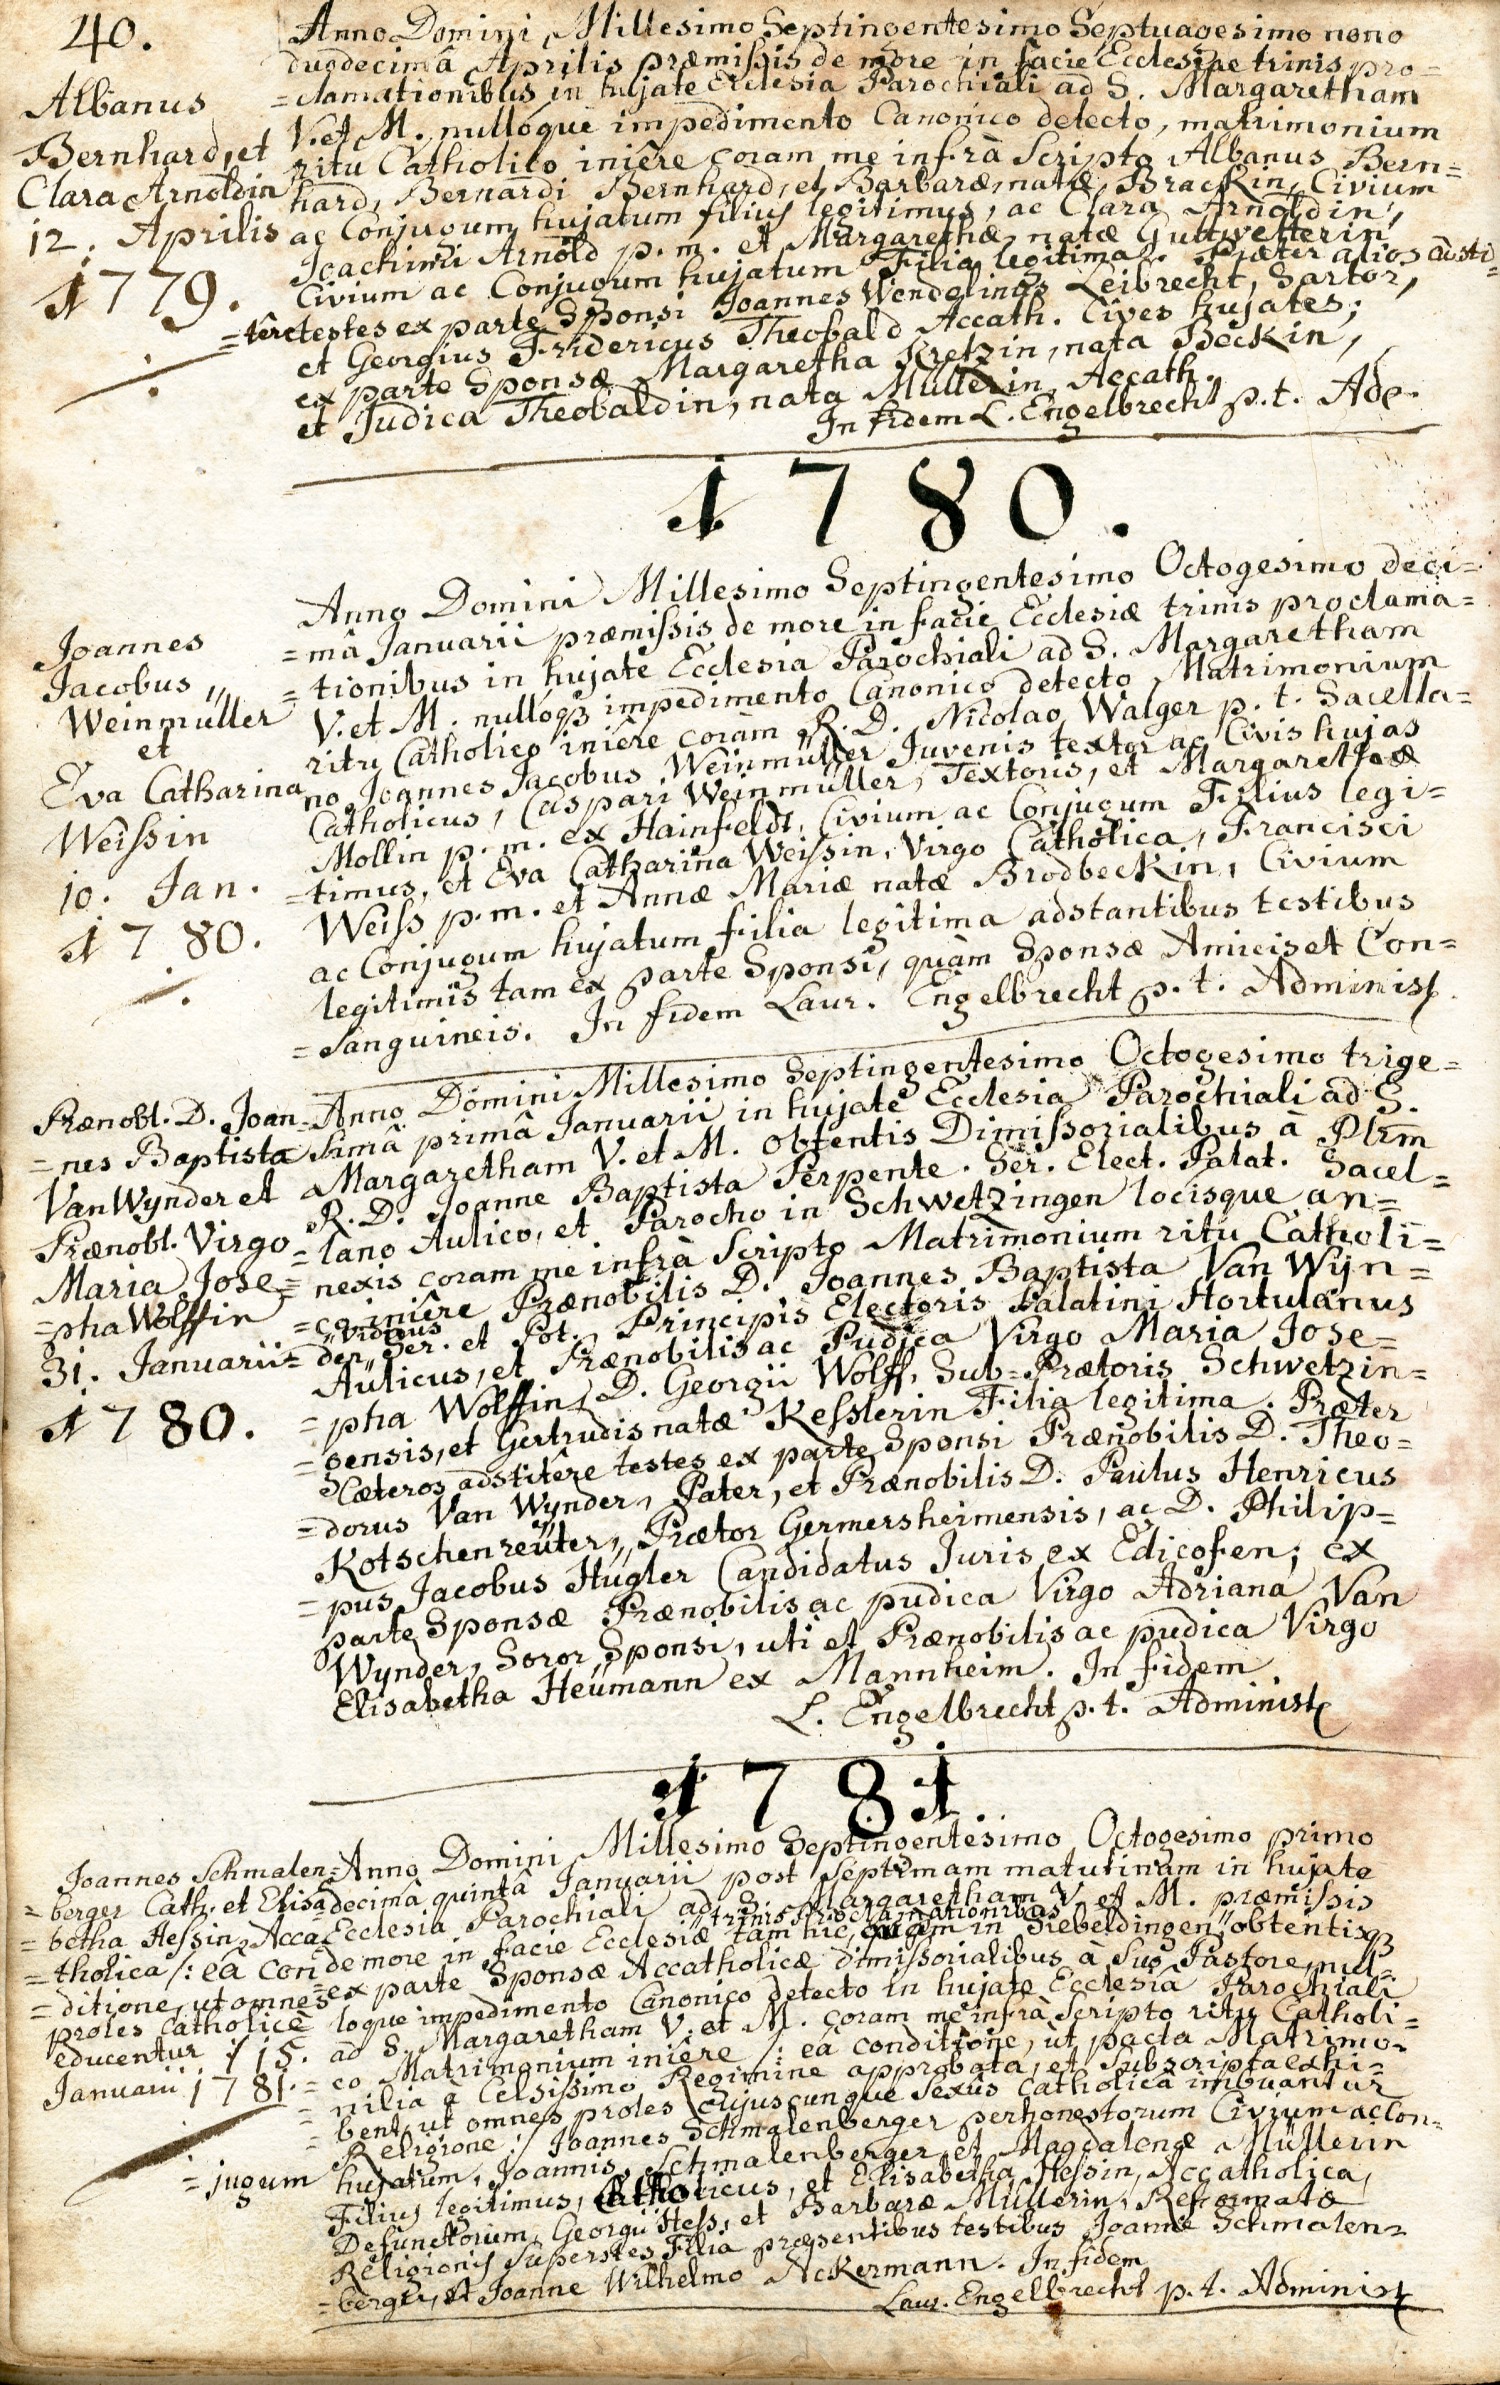 40.
Albanus
Bernhard, et
Clara Arnoldin
12. Aprilis
1779.
Anno Domini Millesimo Septingentesimo Septuagesimo nono
duodecimâ Aprilis præmissis de more in facie Ecclesiae trinis pro=
=clamationibus in hujate Ecclesia Parochiali ad S. Margaretham
V. et M. nullóque impedimento Canonico detecto, matrimonium
ritu Catholico iniêre coram me infrà Scripto Albanus Bern=
hard, Bernardi Bernhard, et Barbaræ, natæ, Brackin, Civium
ac Conjugum hujatum filius legitimus, ac Clara Arnoldin,
Joachimi Arnold p. m. et Margarethæ natæ Guttwetterin
Civium ac Conjugum hujatum Filia legitima. Præter alios adsti=
=têre testes ex parte Sponsi Joannes Wendelinus Leibrecht, Sartor,
et Georgius Fridericus Theobald Accath. Cives hujates;
ex parte Sponsæ Margaretha Kretzin, nata Beckin,
et Judica Theobaldin, nata Müllerin, Accath.
In fidem L. Engelbrecht p. t. Adp.
1780.
Joannes
Jacobus
Weinmüller
et
Eva Catharina
Weissin
10. Jan.
1780.
Anno Domini Millesimo Septingentesimo Octogesimo deci=
=mâ Januarii præmissis de more in facie Ecclesiæ trinis proclama=
=tionibus in hujate Ecclesia Parochiali ad S. Margaretham
V. et M. nullóqꝫ impedimento Canonico detecto Matrimonium
ritu Catholico iniêre coràm R. D. Nicolao Walger p. t. Sacella=
no Joannes Jacobus Weinmüller Juvenis textor ac Civis hujas
Catholicus, Caspari Weinmüller, Textoris, et Margarethæ
Mollin p. m. ex Hainfeldt, Civium ac Conjugum Filius legi=
=timus, et Eva Catharina Weissin, Virgo Catholica, Francisci
Weiss p. m. et Annæ Mariæ natæ Brodbeckin, Civium
ac Conjugum hujatum filia legitima adstantibus testibus
legitimis tam ex parte Sponsi, quàm Sponsæ Amicis et Con=
=sanguineis. In fidem Laur. Engelbrecht p. t. Administ.
Prænobl. D. Joan=
=nes Baptista
Van Wynder et
Prænobl. Virgo
Maria Jose=
=pha Wolffin
31. Januarii
1780.
Anno Domini Millesimo Septingentesimo Octogesimo trige=
simâ primâ Januarii in hujate Ecclesia Parochiali ad S.
Margaretham V. et M. obtentis Dimissorialibus à Plrm
R. D. Joanne Baptista Perpente. Ser. Elect. Palat. Sacel=
=lano Aulico, et Parocho in Schwetzingen locisque an=
nexis coram me infrà Scripto Matrimonium ritu Catholi=
=co iniêre Prænobilis D. Joannes Baptista Van Wyn=
=der viduus Ser. et Pot. Principis Electoris Palatini Hortulanus
Aulicus, et Prænobilis ac Pudica Virgo Maria Jose=
=pha Wolffin, D. Georgii Wolff, Sub=Prætoris Schwetzin=
=gensis, et Gertrudis natæ Kesslerin Filia legitima. Præter
Cæteros adstitêre testes ex parte Sponsi Prænobilis D. Theo=
=dorus Van Wynder, Pater, et Prænobilis D. Paulus Henricus
Kotschenreüter, Prætor Germersheimensis, ac D. Philip=
=pus Jacobus Hugler Candidatus Juris ex Edicofen; ex
parte Sponsæ Prænobilis ac pudica Virgo Adriana Van
Wynder, Soror Sponsi, uti et Prænobilis ac pudica Virgo
Elisabetha Heümann ex Mannheim. In fidem
L. Engelbrecht p. t. Administ
1781.
Joannes Schmalen=
=berger Cath. et Elisa=
=betha Hessin, Acca=
=tholica /: eâ con=
=ditione, ut omnes
proles Catholicè
educentur :/ 15.
Januarii 1781.
Anno Domini Millesimo Septingentesimo Octogesimo primo
decimâ quintâ Januarii post septimam matutinam in hujate
Ecclesia Parochiali ad S. Margaretham V. et M. præmissis
de more in facie Ecclesiæ trinis proclamationibus tam hic, quàm in Siebeldingen, obtentisqꝫ
ex parte Sponsæ Accatholicæ dimissorialibus à Suo Pastore, nul=
loque impedimento Canonico detecto in hujate Ecclesia Parochiali
ad S. Margaretham V. et M. coram me infrà Scripto ritu Catholi=
=co Matrimonium iniêre /: eâ conditione, ùt pacta Matrimo=
=nilia à Celsissimo Regimine approbata, et Subscripta exhi=
=bent, ut omnes proles cujuscunque Sexûs Catholicâ imbuantur
Religione :/ Joannes Schmalenberger perhonestorum Civium ac Con=
=jugum hujatum, Joannis Schmalenberger, et Magdalenæ Müllerin
Filius legitimus, Catholicus, et Elisabetha Hessin, Accatholica,
Defunctorum Georgii Hess, et Barbaræ Müllerin, Reformatæ
Religionis Superstes Filia præsentibus testibus Joanne Schmalen=
=berger, et Joanne Wilhelmo Ackermann. In fidem
Laur. Engelbrecht p. t. Administ